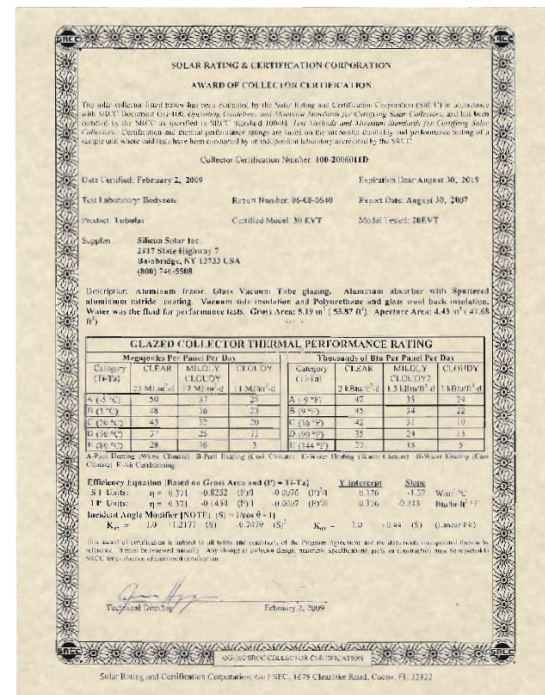 SRCC SRCC
SOLAR RATING & CERTIFICATION CORPORATION
AWARD OF COLLECTOR CERTIFICATION
The solar collector listed below has been evaluated by the Solar Rating and Certification Corporation (SRCC) in accordance
with SRCC Document OG-100, Operating Guidelines and Minimum Standards for Certifying Solar Collectors, and has been
certified by the SRCC as specified in SRCC Standard 100-04, Test Methods and Minimum Standards for Certifying Solar
Collectors. Certification and thermal performance ratings are based on the successful durability and performance testing of a
sample unit where said tests have been conducted by an independent laboratory accredited by the SRCC
Collector Certification Number: 100-2006011D
Date Certified: February 2, 2009 Expiration Date: August 30, 2019
Test Laboratory: Bodycote Report Number: 06-08-0540 Report Date: August 30, 2007
Product: Tubular Certified Model: 30 EVT Model Tested: 20EVT
Supplier: Silicon Solar Inc.
2917 State Highway 7
Bainbridge, NY 13733 USA
(800) 746-5508
Description: Aluminum frame. Glass Vacuum Tube glazing. Aluminum absorber with Sputtered
aluminium nitride coating. Vacuum side insulation and Polyurethane and glass wool back insulation.
Water was the fluid for performance tests. Gross Area: 5.19 m² (55.87 ft²). Aperture Area: 4.43 m² (47.68
ft²)
GLAZED COLLECTOR THERMAL PERFORMANCE RATING
Megajoules Per Panel Per Day Thousands of Btu Per Panel Per Day
Category CLEAR MILDLY CLOUDY Category CLEAR MILDLY CLOUDY
(Ti-Ta) CLOUDY (Ti-Ta) CLOUDY
23 MJ/m²-d 17 MJ/m²-d 11 MJ/m²-d 2 kBtu/ft²-d 1.5 kBtu/ft²-d 1 kBtu/ft²-d
A (-5 °C) 50 37 25 A (-9 °F) 47 35 24
B (5 °C) 48 36 23 B (9 °F) 45 34 22
C (20 °C) 45 32 20 C (36 °F) 42 31 19
D (50 °C) 37 26 D (90 °F) 35 24 13
E (80 °C) 28 16 5 E (144 °F) 27 15 5
A-Pool Heating (Warm Climate) B-Pool Heating (Cool Climate) C-Water Heating (Warm Climate) D-Water Heating (Cool
Climate) E-Air Conditioning
Efficiency Equation [Based on Gross Area and (P) = Ti-Ta] Y Intercept Slope
S I Units: η = 0.371 -0.8252 (P)/I (P)²/I 0.376 W/m²·°C
I P Units: η = 0.371 -0.1454 (P)/I -0.0007 (P)²/I 0.376 Btu/hr·ft²·°F
Incident Angle Modifier [NOTE: (S) = 1/cos θ - 1]
1.0 (S) (S)² 1.0 (S) (Linear Fit)
This award of certification is subject to all terms and conditions of the Program Agreement and the documents incorporated therein by
reference. It must be renewed annually. Any change in collector design, materials, specifications, parts, or construction must be reported to
SRCC for evaluation of continued certification.
Technical Director February 2, 2009
SRCC OG-100 SRCC COLLECTOR CERTIFICATION SRCC
Solar Rating and Certification Corporation, c/o FSEC, 1679 Clearlake Road, Cocoa, FL 32922